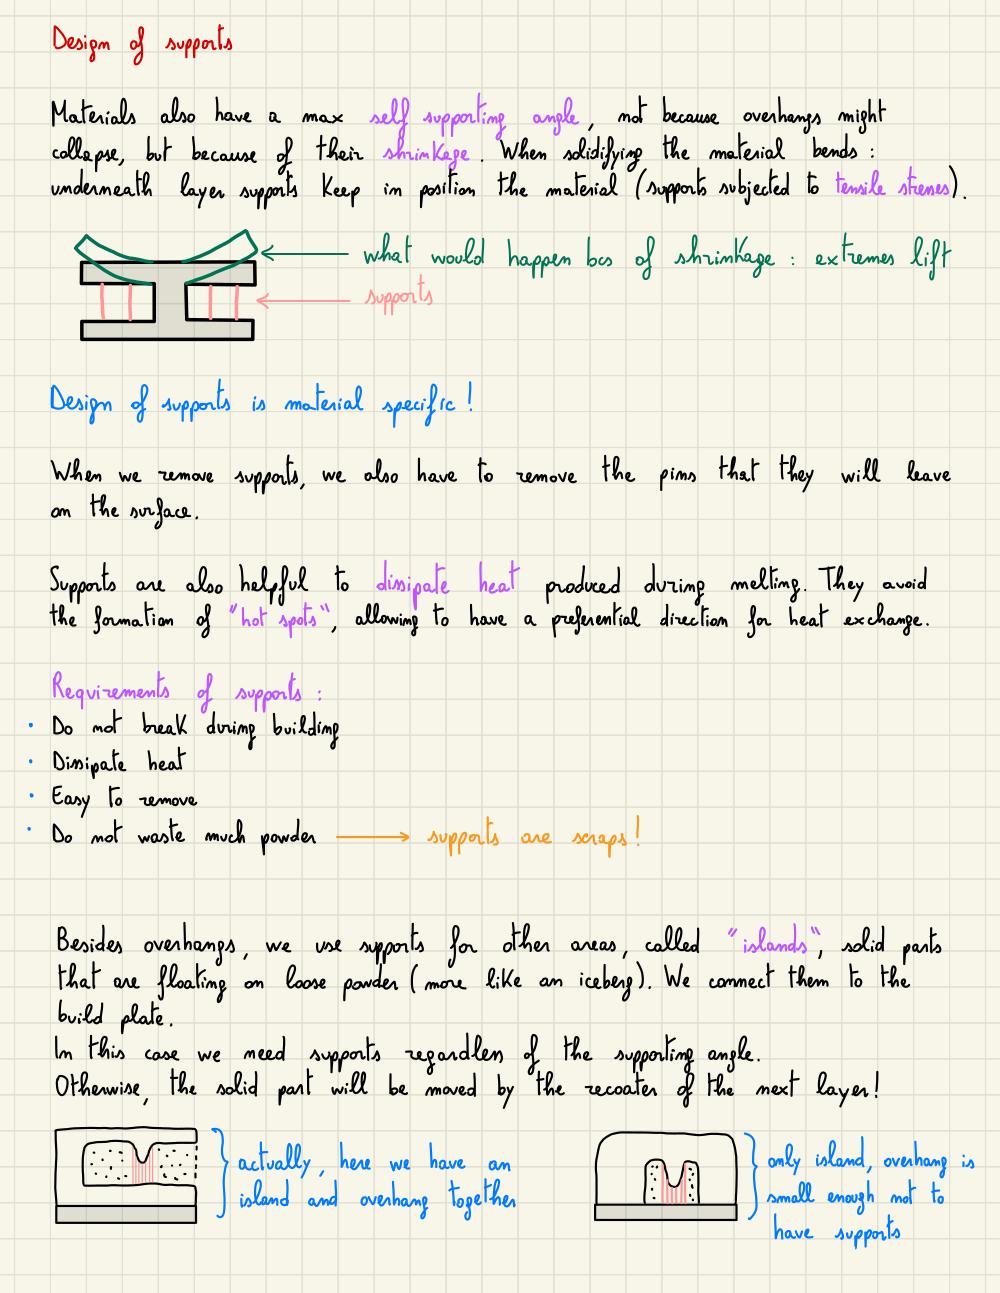 Design of supports
Materials also have a max self supporting angle, not because overhangs might
collapse, but because of their shrinkage. When solidifying the material bends:
underneath layer supports keep in position the material (supports subjected to tensile stresses).
what would happen bcs of shrinkage: extremes lift
supports
Design of supports is material specific!
When we remove supports, we also have to remove the pins that they will leave
on the surface.
Supports are also helpful to dissipate heat produced during melting. They avoid
the formation of "hot spots", allowing to have a preferential direction for heat exchange.
Requirements of supports:
· Do not break during building
· Dissipate heat
· Easy to remove
· Do not waste much powder → supports are scraps!
Besides overhangs, we use supports for other areas, called "islands", solid parts
that are floating on loose powder (more like an iceberg). We connect them to the
build plate.
In this case we need supports regardless of the supporting angle.
Otherwise, the solid part will be moved by the recoater of the next layer!
actually, here we have an
island and overhang together
only island, overhang is
small enough not to
have supports